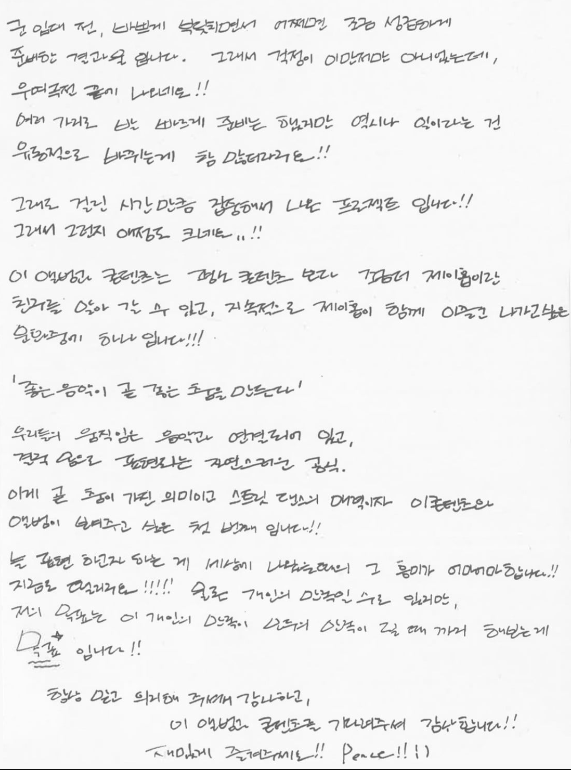 군 입대 전, 바쁘게 부딪치면서 어쩌면 조금 성급하게
준비한 결과물 입니다. 그래서 걱정이 이만저만 아니었는데,
우여곡절 끝에 나오네요!!
여러 가지로 발 빠르게 준비는 했지만 역시나 일이라는 건
유동적으로 바뀌는게 참 많더라구요!!
그래도 걸린 시간만큼 집중해서 나온 프로젝트 입니다!!
그래서 그런지 애정도 크네요,,!!
이 앨범과 콘텐츠는 평소 콘텐츠 보다 좀더 제이홉이란
친구를 알아 갈 수 있고, 지속적으로 제이홉이 함께 이끌고 나가고싶은
문화중에 하나 입니다!!!
'좋은 음악이 곧 좋은 춤을 만든다'
우리들의 움직임는 음악과 연결되어 있고,
결국 춤으로 표현되는 자연스러운 공식.
이게 곧 춤이 가진 의미이고 스트릿 댄스의 매력이자 이콘텐츠와
앨범이 보여주고 싶은 첫 번째 입니다!!
늘 표현 하고자 하는 게 세상에 나왔을때의 그 흥미가 어마어마합니다!!
지금도 떨리구요!!!!! 물론 개인의 만족일 수도 있지만,
저의 목표는 이 개인의 만족이 모두의 만족이 될 때 까지 해보는게
목표 입니다!!
항상 믿고 의지해 주셔서 감사하고,
이 앨범과 콘텐츠를 기다려주셔 감사합니다!!
재밌게 즐겨주세요!! Peace!! :)